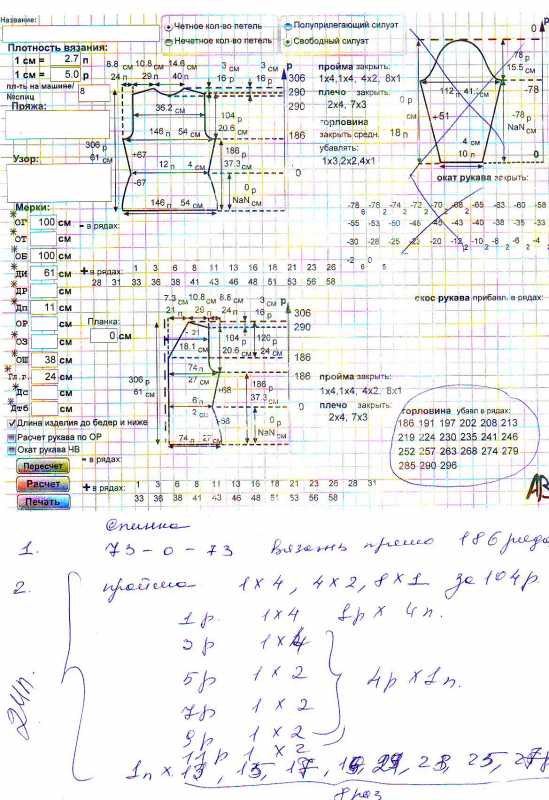 Название:
Четное кол-во петель
Нечетное кол-во петель
Полуприлегающий силуэт
Свободный силуэт
Плотность вязания:
1 см = 2.7 п
1 см = 5.0 р
пл-ть на машине/ 8
№спиц
Пряжа:
Узор:
8.8 см 10.8 см 14.6 см
24 п 29 п 40 п
3 см 3 см
16 р 16 р
р
306
290
36.2 см
104 р
20.6 см
186
146 п 54 см
306 р
61 см
+67
-67
12 п 4 см
186 р
37.3 см
0
0 р
NaN см
146 п 54 см
пройма закрыть:
1x4,1x4, 4x2, 8x1
плечо закрыть:
2x4, 7x3
горловина
закрыть средн. 18 п
убавлять:
1x3,2x2,4x1
р
0
78 р
15.5 см
-78
112 п 41. см
0 р
см
+51
-78 р
NaN см
4 см
10 п
0
окат рукава закрыть:
-78 -78 -76 -73 -71 -68 -66 -63 -60 -58
-55 -53 -50 -48 -45 -43 -40 -38 -35 -33
-30 -28 -25 -22 -20 -12 -10 -8 -6 -4
-2 0
Мерки:
ОГ 100 см
ОТ см
ОБ 100 см
ДИ 61 см
ДР см
Дп 11 см
ОР см
ОЗ см
ОШ 38 см
Гл.г. 24 см
Дс см
Дтб см
- в рядах:
+ в рядах: 1 3 6 8 11 13 16 18 21 23 26
28 31 33 36 38 41 43 46 48 51 53 56 58
Планка:
0 см
7.3 см 10.8 см 8.8 см
21 п 29 п 24 п
3 см
16 р
р
306
290
21
18.1 см
104 р
20.6 см
120 р
24 см
186
74 п
27 см
306 р
61 см
+68
186 р
37.3 см
6 п
2 см
0
+68
0 р
NaN см
74 п 27 см
пройма закрыть:
1x4,1x4, 4x2, 8x1
плечо закрыть:
2x4, 7x3
скос рукава прибавл. в рядах:
горловина убавл в рядах:
186 191 197 202 208 213
219 224 230 235 241 246
252 257 263 268 274 279
285 290 296
Длина изделия до бедер и ниже
Расчет рукава по ОР
Окат рукава ЧВ
Пересчет
Расчет
Печать
- в рядах:
+ в рядах: 1 3 6 8 11 13 16 18 21 23 26 28 31
33 36 38 41 43 46 48 51 53 56 58
Спинка
1. 73 - 0 - 73 вязать прямо 186 рядо
2. пройма 1x4, 4x2, 8x1 за 104р.
1р. 1x4 1р x 4п.
3р 1x4
5р 1x2
4р x 1п.
7р 1x2
9р 1x2
11р 1x2
24п.
1п x 13, 15, 17
8 раз